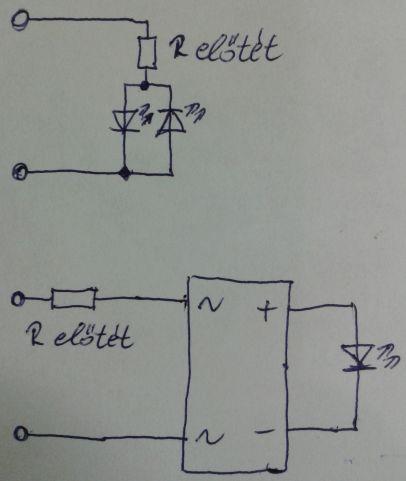 R előtét
~ +
R előtét
~ -